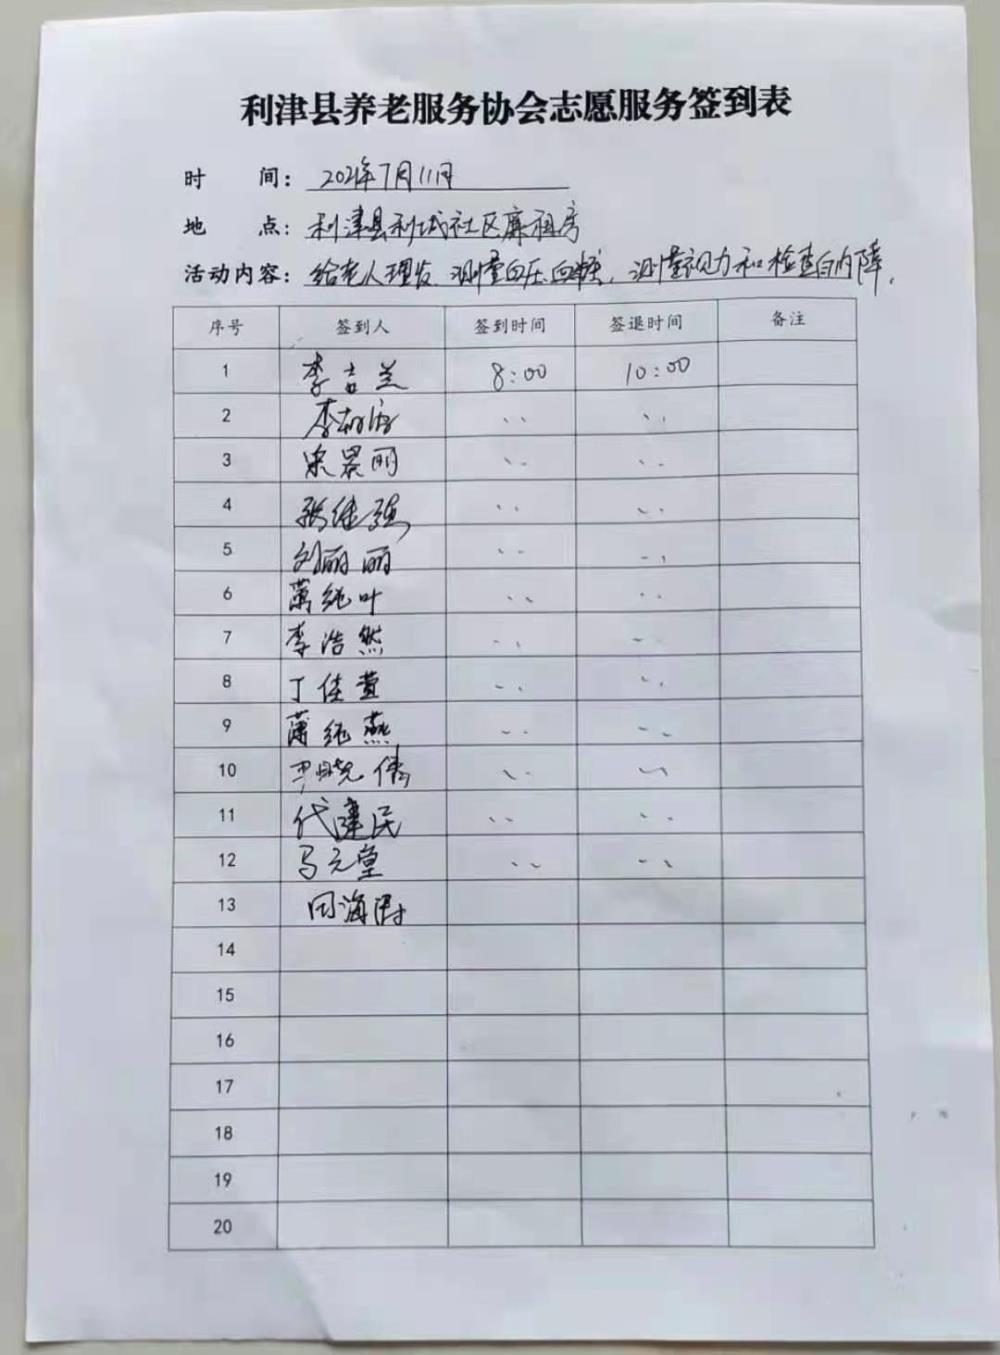 利津县养老服务协会志愿服务签到表
时 间: 2021年7月11日
地 点: 利津县利城社区廉租房
活动内容: 给老人理发、测量血压、血糖,测量视力和检查白内障.
序号 签到人 签到时间 签退时间 备注
1 李吉兰 8:00 10:00
2 李
3 宋景丽
4 张继强
5 刘丽丽
6 萧纯叶
7 李浩然
8 丁佳萱
9 萧纯燕
10 尹晓倩
11 代建民
12 马元堂
13 田海
14
15
16
17
18
19
20